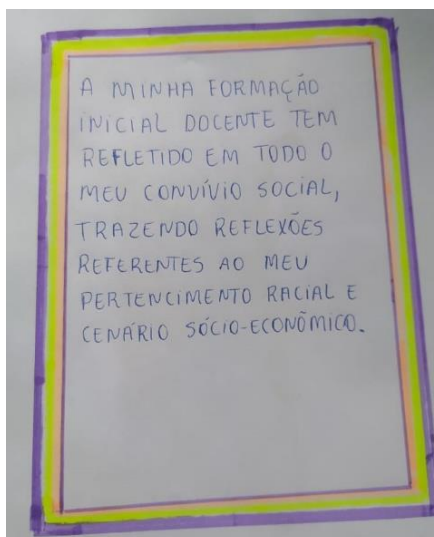 A MINHA FORMAÇÃO
INICIAL DOCENTE TEM
REFLETIDO EM TODO O
MEU CONVÍVIO SOCIAL,
TRAZENDO REFLEXÕES
REFERENTES AO MEU
PERTENCIMENTO RACIAL E
CENÁRIO SÓCIO-ECONÔMICO.